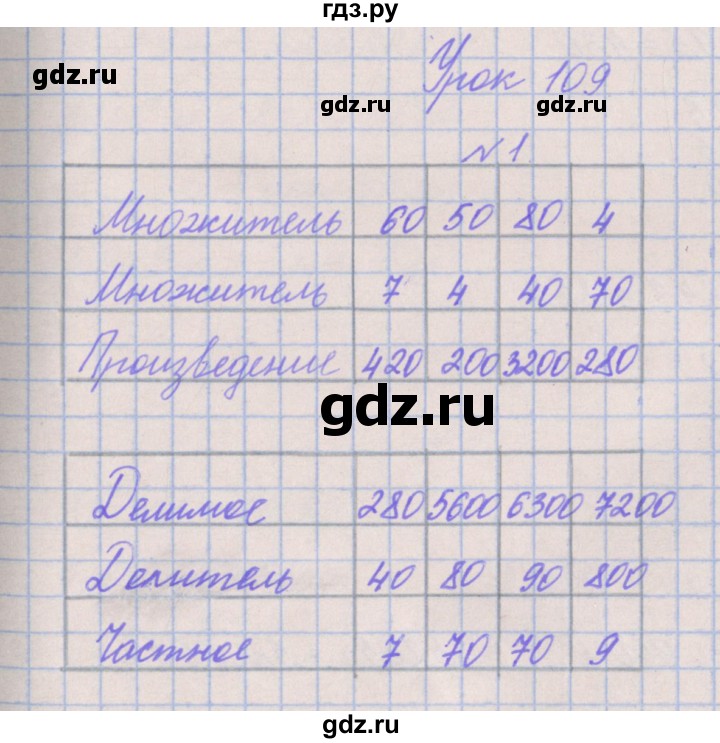 гдз.ру
Урок 109
gdz.ru
gdz.ru
gdz.ru
№1
Множитель 60 50 80 4
Множитель 7 4 40 70
Произведение 420 200 3200 280
gdz.ru
Делимое 280 5600 6300 7200
Делитель 40 80 90 800
Частное 7 70 70 9
gdz.ru